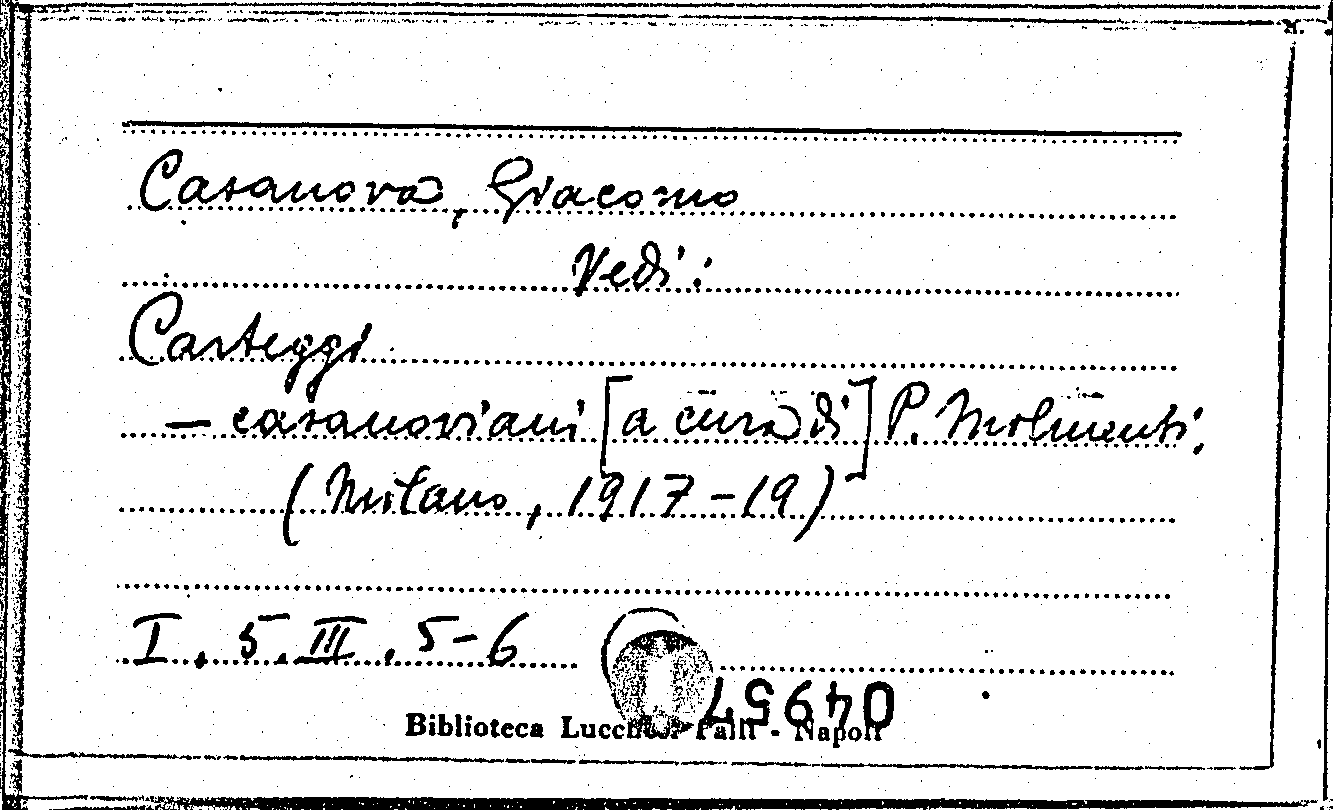 Casanova, Giacomo
Vedi:
Carteggi
— casanoviani [a cura di] P. Molmenti.
(Milano, 1917-19)
I. 5. III. 5-6
04957
Biblioteca Lucchesi Palli - Napoli